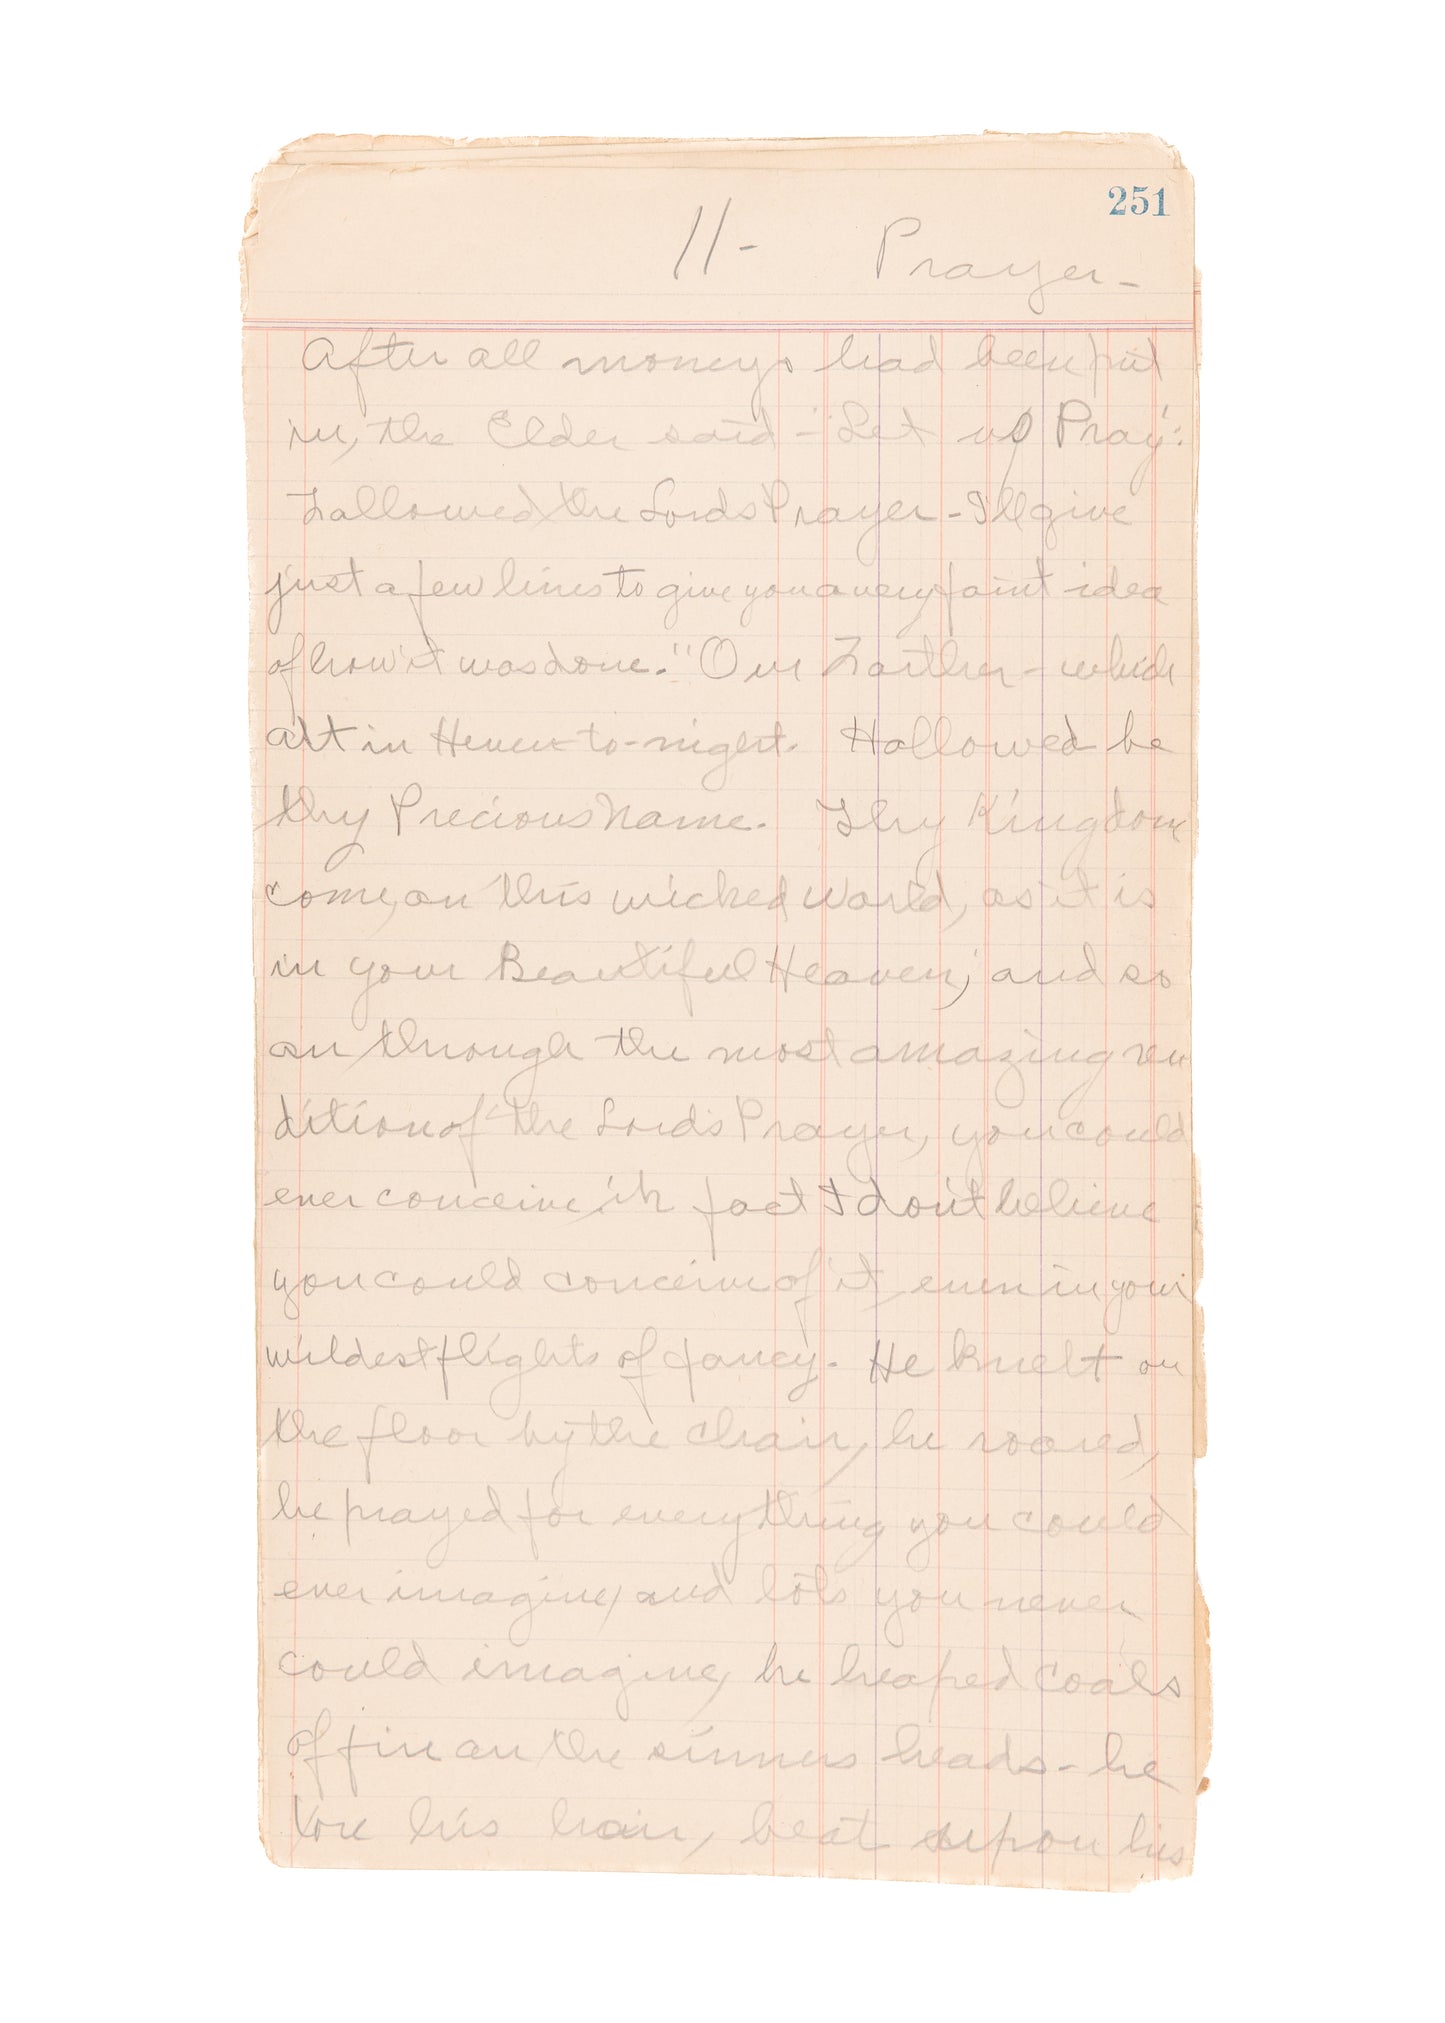 251
11- Prayer-
After all moneys had been put
in, the Elder said - "Let us Pray":
Fallowed the Lords Prayer - I'll give
just a few lines to give you a very faint idea
of how it was done. "Our Farther - which
art in Heven to-night. Hallowed be
thy Precious Name. Thy Kingdom
come, on this wicked World, as it is
in your Beautiful Heaven; and so
on through the most amazing ren
dition of the Lord's Prayer, you could
ever conceive, in fact I don't believe
you could conceive of it, even in your
wildest flights of fancy. He knelt on
the floor by the chair, he roared,
he prayed for everything you could
ever imagine, and lots you never
could imagine, he heaped coals
of fire on the sinners heads - he
tore his hair, beat upon his